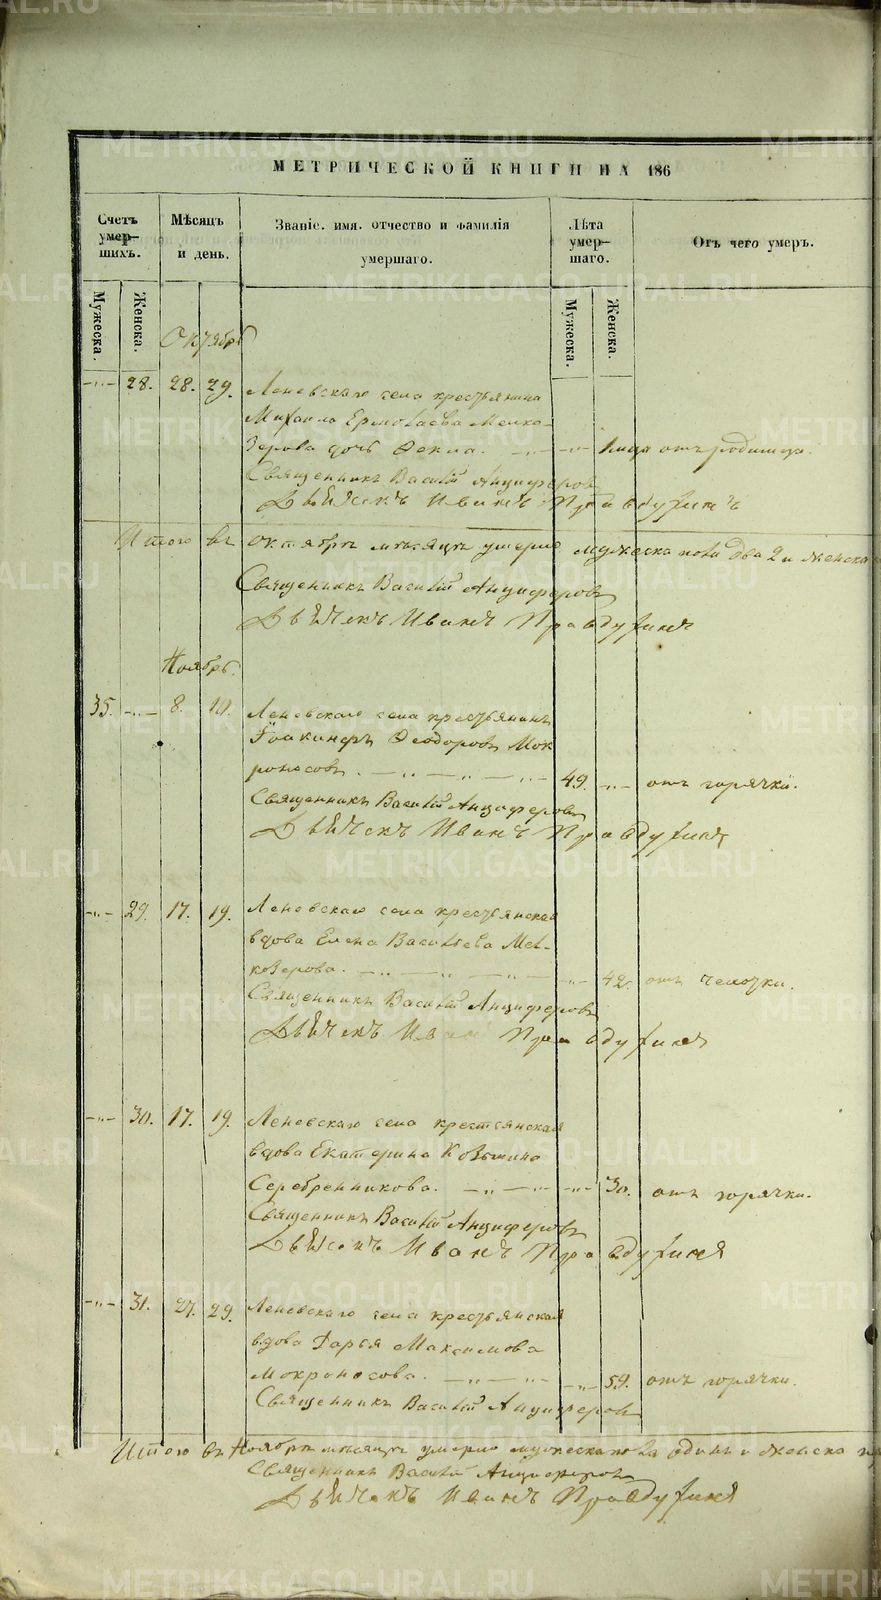 МЕТРИЧЕСКОЙ КНИГИ НА 186
Счетъ умер-шихъ.
Мѣсяцъ и день.
Званіе, имя, отчество и фамилія умершаго.
Лѣта умер-шаго.
Отъ чего умеръ.
Мужеска.
Женска.
Мужеска.
Женска.
Октябрь
-"- 28. 28. 29. Леневскаго села крестьянина
Михаила Ермолаева Мелко-
зерова дочь Фекла. -"-
Священникъ Василій Анциферовъ
Дьячекъ Иванъ
Итого въ октябрѣ мѣсяцѣ умерло мужеска пола два 2 и женска
Священникъ Василій Анциферовъ
Дьячекъ Иванъ
Ноябрь.
35. -"- 8. 10. Леневскаго села крестьянинъ
Іоакинфъ Феодоровъ Мок
роносовъ. -"- -"- 49. -"- отъ горячки.
Священникъ Василій Анциферовъ
Дьячекъ Иванъ
-"- 29. 17. 19. Леневскаго села крестьянская
вдова Елена Васильева Мел-
козерова. -"- -"- 42. отъ чахотки.
Священникъ Василій Анциферовъ
Дьячекъ Иванъ
-"- 30. 17. 19. Леневскаго села крестьянская
вдова Екатерина Козьмина
Серебренникова. -"- -"- 30. отъ горячки.
Священникъ Василій Анциферовъ
Дьячекъ Иванъ
-"- 31. 27. 29. Леневскаго села крестьянская
вдова Дарья Максимова
Мокроносова. -"- -"- 59. отъ горячки.
Священникъ Василій Анциферовъ
Итого въ Ноябрѣ мѣсяцѣ умерло мужеска пола одинъ и женска
Священникъ Василій Анциферовъ
Дьячекъ Иванъ
METRIKI.GASO-URAL.RU